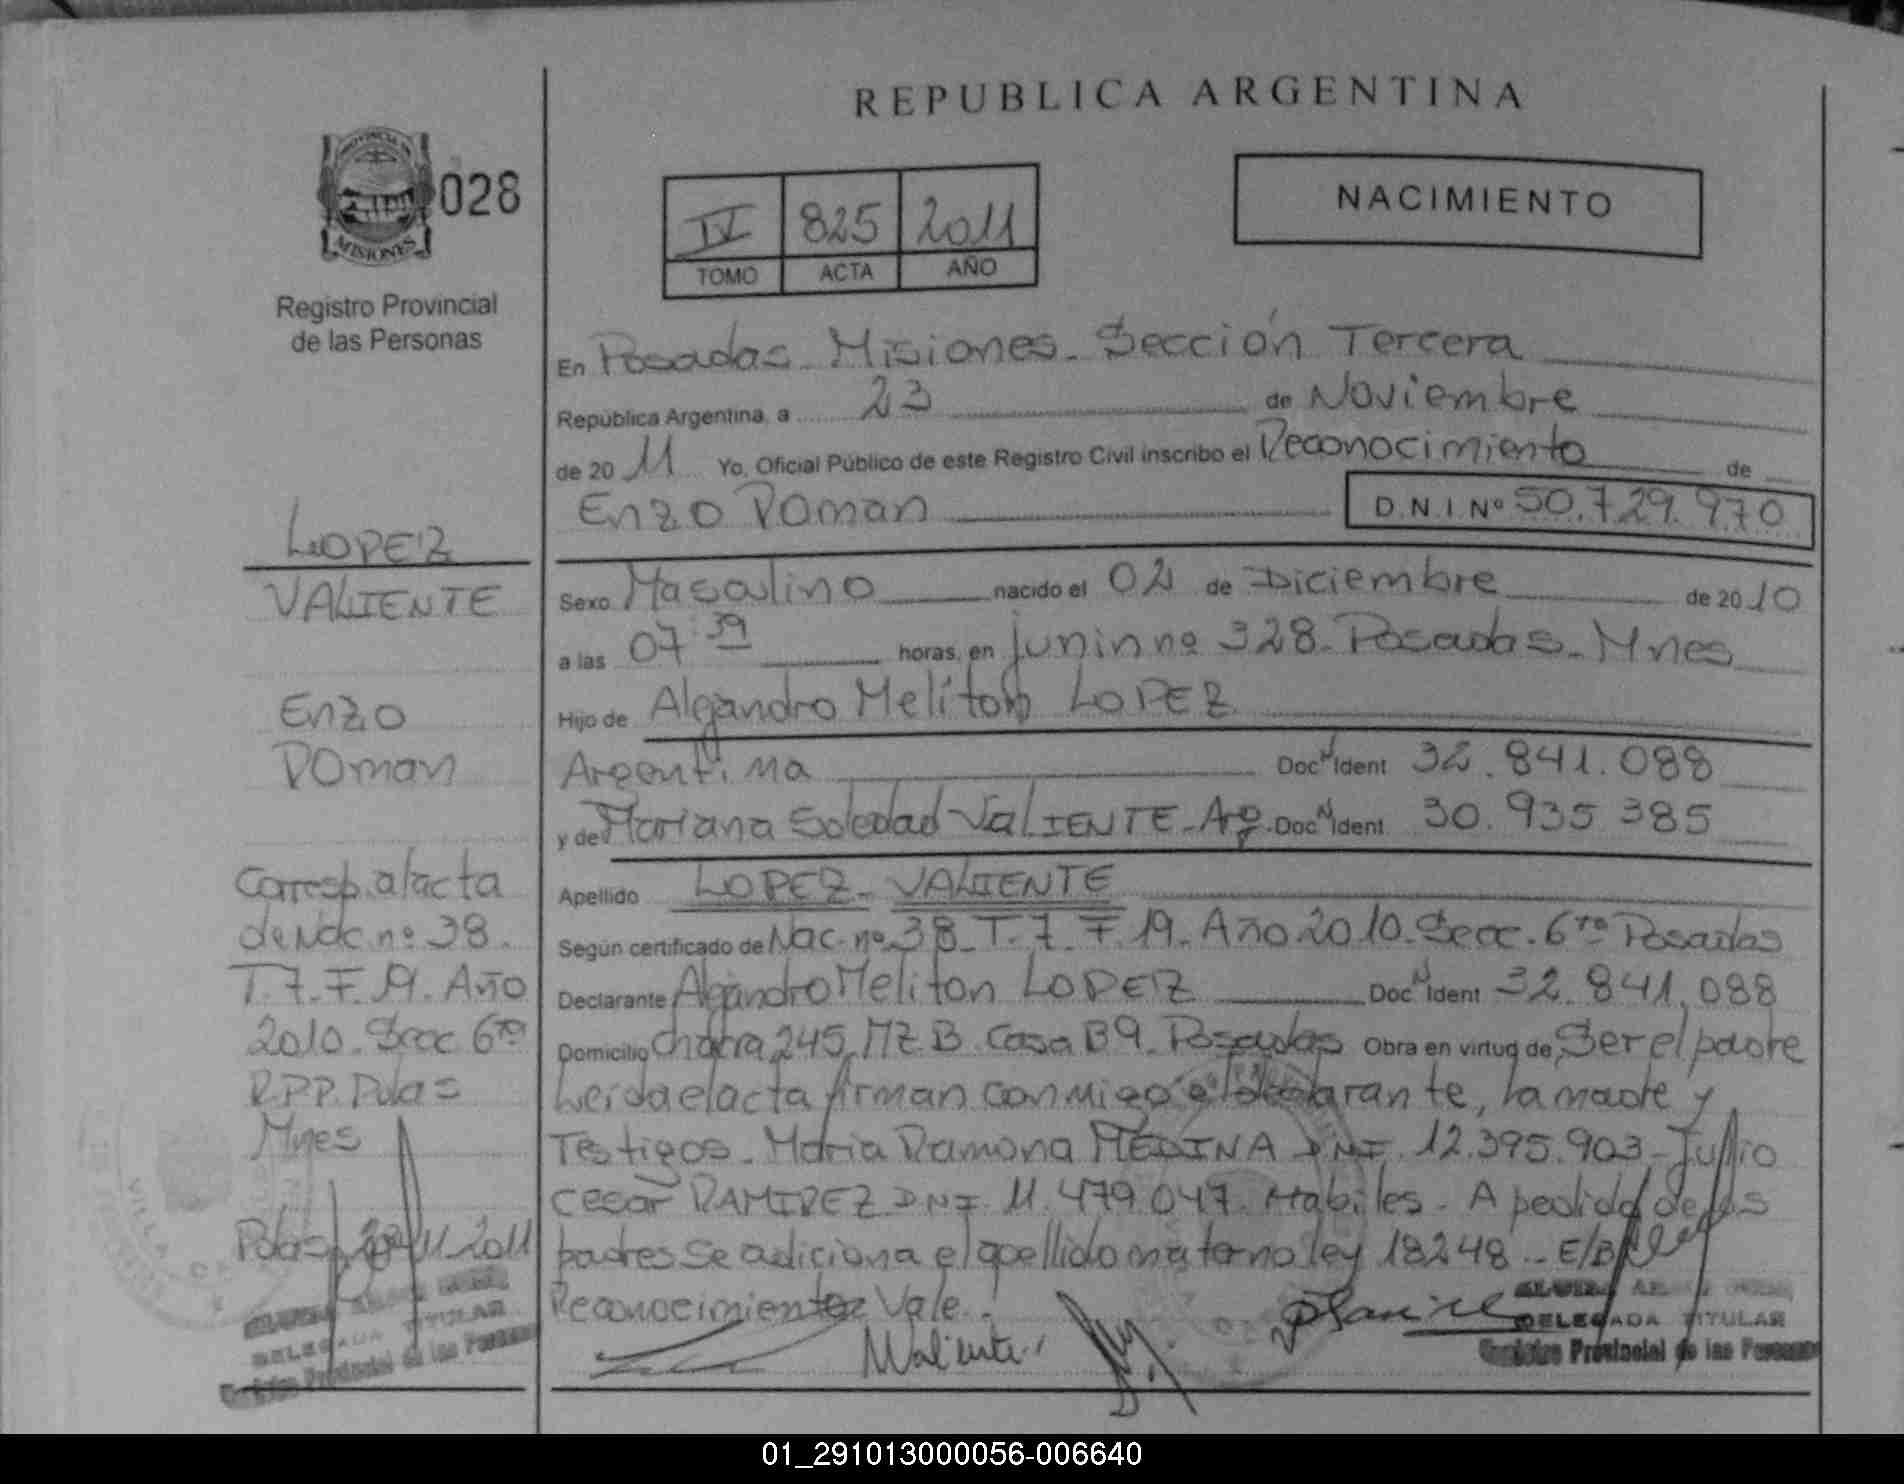 REPUBLICA ARGENTINA
028
MISIONES
Registro Provincial
de las Personas
IV 825 2011
TOMO ACTA AÑO
NACIMIENTO
En Posadas - Misiones - Sección Tercera
República Argentina, a 23 de Noviembre
de 20 11 Yo, Oficial Público de este Registro Civil inscribo el Reconocimiento de
Enzo Roman D.N.I. Nº 50.729.970
Sexo Masculino nacido el 02 de Diciembre de 20 10
a las 07 39 horas, en Junin nº 328 - Posadas - Mnes
Hijo de Alejandro Meliton LOPEZ
Argentina Doc. Ident 32.841.088
y de Mariana Soledad VALIENTE - Arg. Doc. Ident 30.935 385
Apellido LOPEZ - VALIENTE
Según certificado de Nac. nº 38 - T. 7 - F. 19 - Año 2010 - Secc. 6ta Posadas
Declarante Alejandro Meliton LOPEZ Doc. Ident 32.841.088
Domicilio Chacra 245 MZ. B Casa B9 - Posadas Obra en virtud de Ser el padre
Leída el acta firman conmigo el declarante, la madre y
Testigos - Maria Ramona MEDINA DNI. 12.395.903 - Julio
Cesar RAMIREZ DNI. 11.479.047. Habiles - A pedido de los
padres se adiciona el apellido materno ley 18248 - E/R
Reconocimiento Vale.
MValiente
DELEGADA TITULAR
Registro Provincial de las Personas
LOPEZ
VALIENTE
Enzo
Roman
Corresp. al acta
de Nac nº 38.
T. 7 - F. 19. Año
2010 - Secc 6ta
R.P.P. Pdas
Mnes
Pdas, 23-11-2011
DELEGADA TITULAR
Registro Provincial de las Personas
01_291013000056-006640